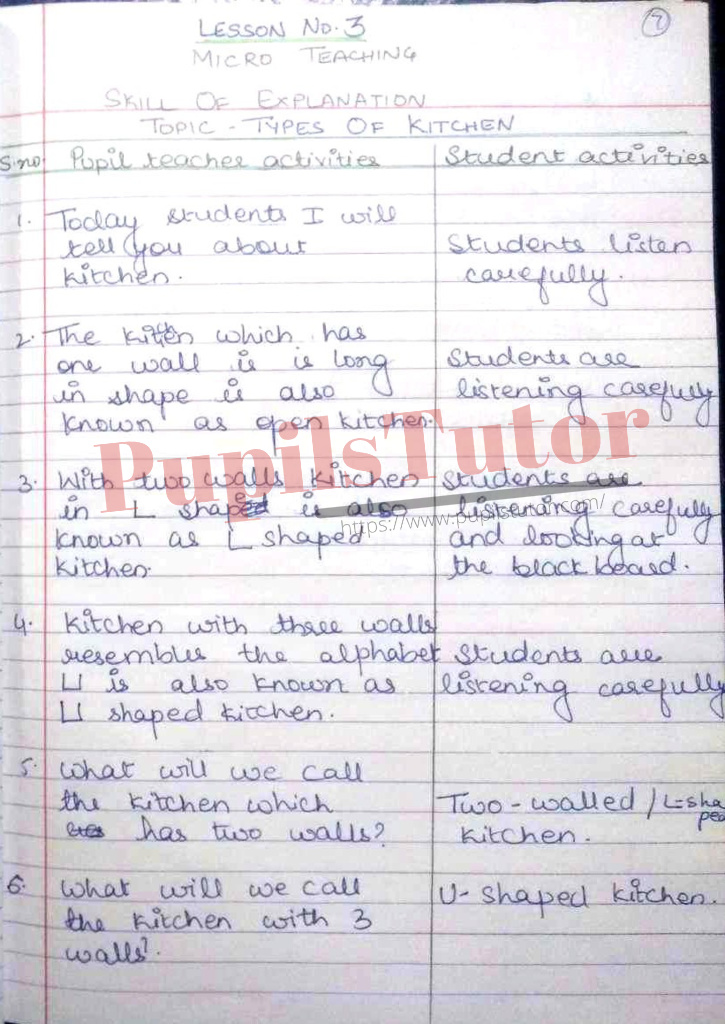 7
LESSON NO. 3
MICRO TEACHING
SKILL OF EXPLANATION
TOPIC - TYPES OF KITCHEN
S.no. Pupil teacher activities Student activities
1. Today students I will
tell you about Students listen
kitchen. carefully.
2. The kitten which has
one wall is is long Students are
in shape is also listening carefully
known as open kitchen.
PupilsTutor
3. With two walls kitchen Students are
in L shaped is also listening carefully
https://www.pupilstutor.com/
known as L shaped and looking at
kitchen. the black board.
4. Kitchen with three walls
resembles the alphabet Students are
U is also known as listening carefully
U shaped kitchen.
5. What will we call
the kitchen which Two-walled / L-shaped
has two walls? kitchen.
6. What will we call U-shaped kitchen.
the kitchen with 3
walls?